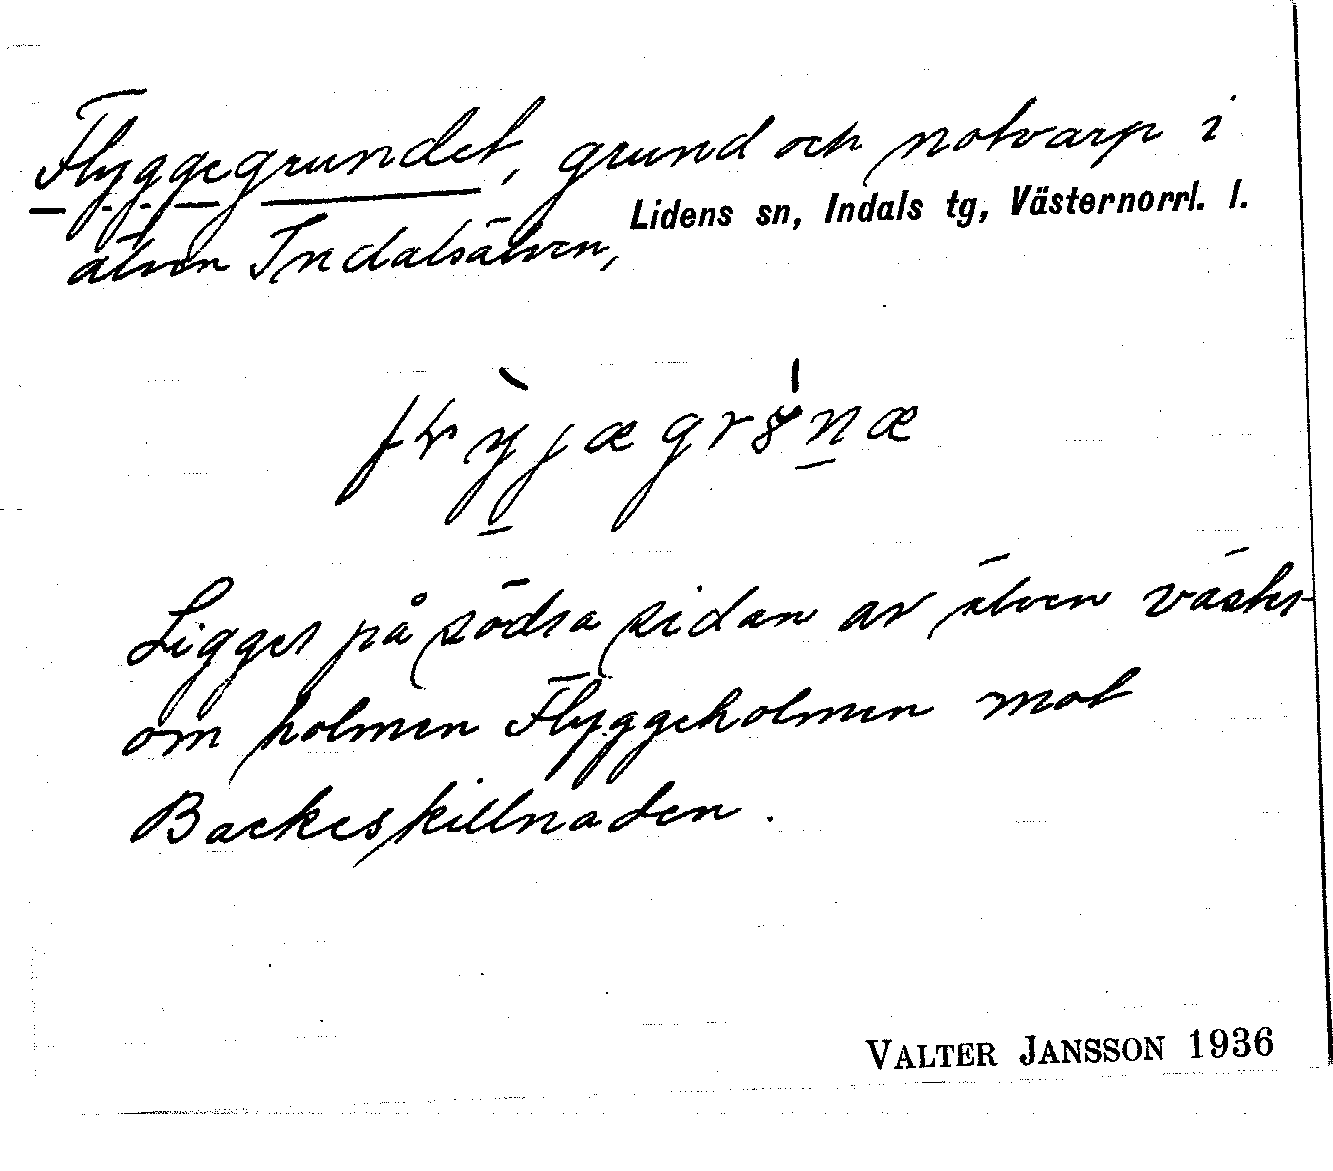 Flyggegrundet, grund och notvarp i
Lidens sn, Indals tg, Västernorrl. l.
älven Indalsälven,
Ligger på södra sidan av älven väster-
om holmen Flyggeholmen mot
Backeskillnaden.
VALTER JANSSON 1936